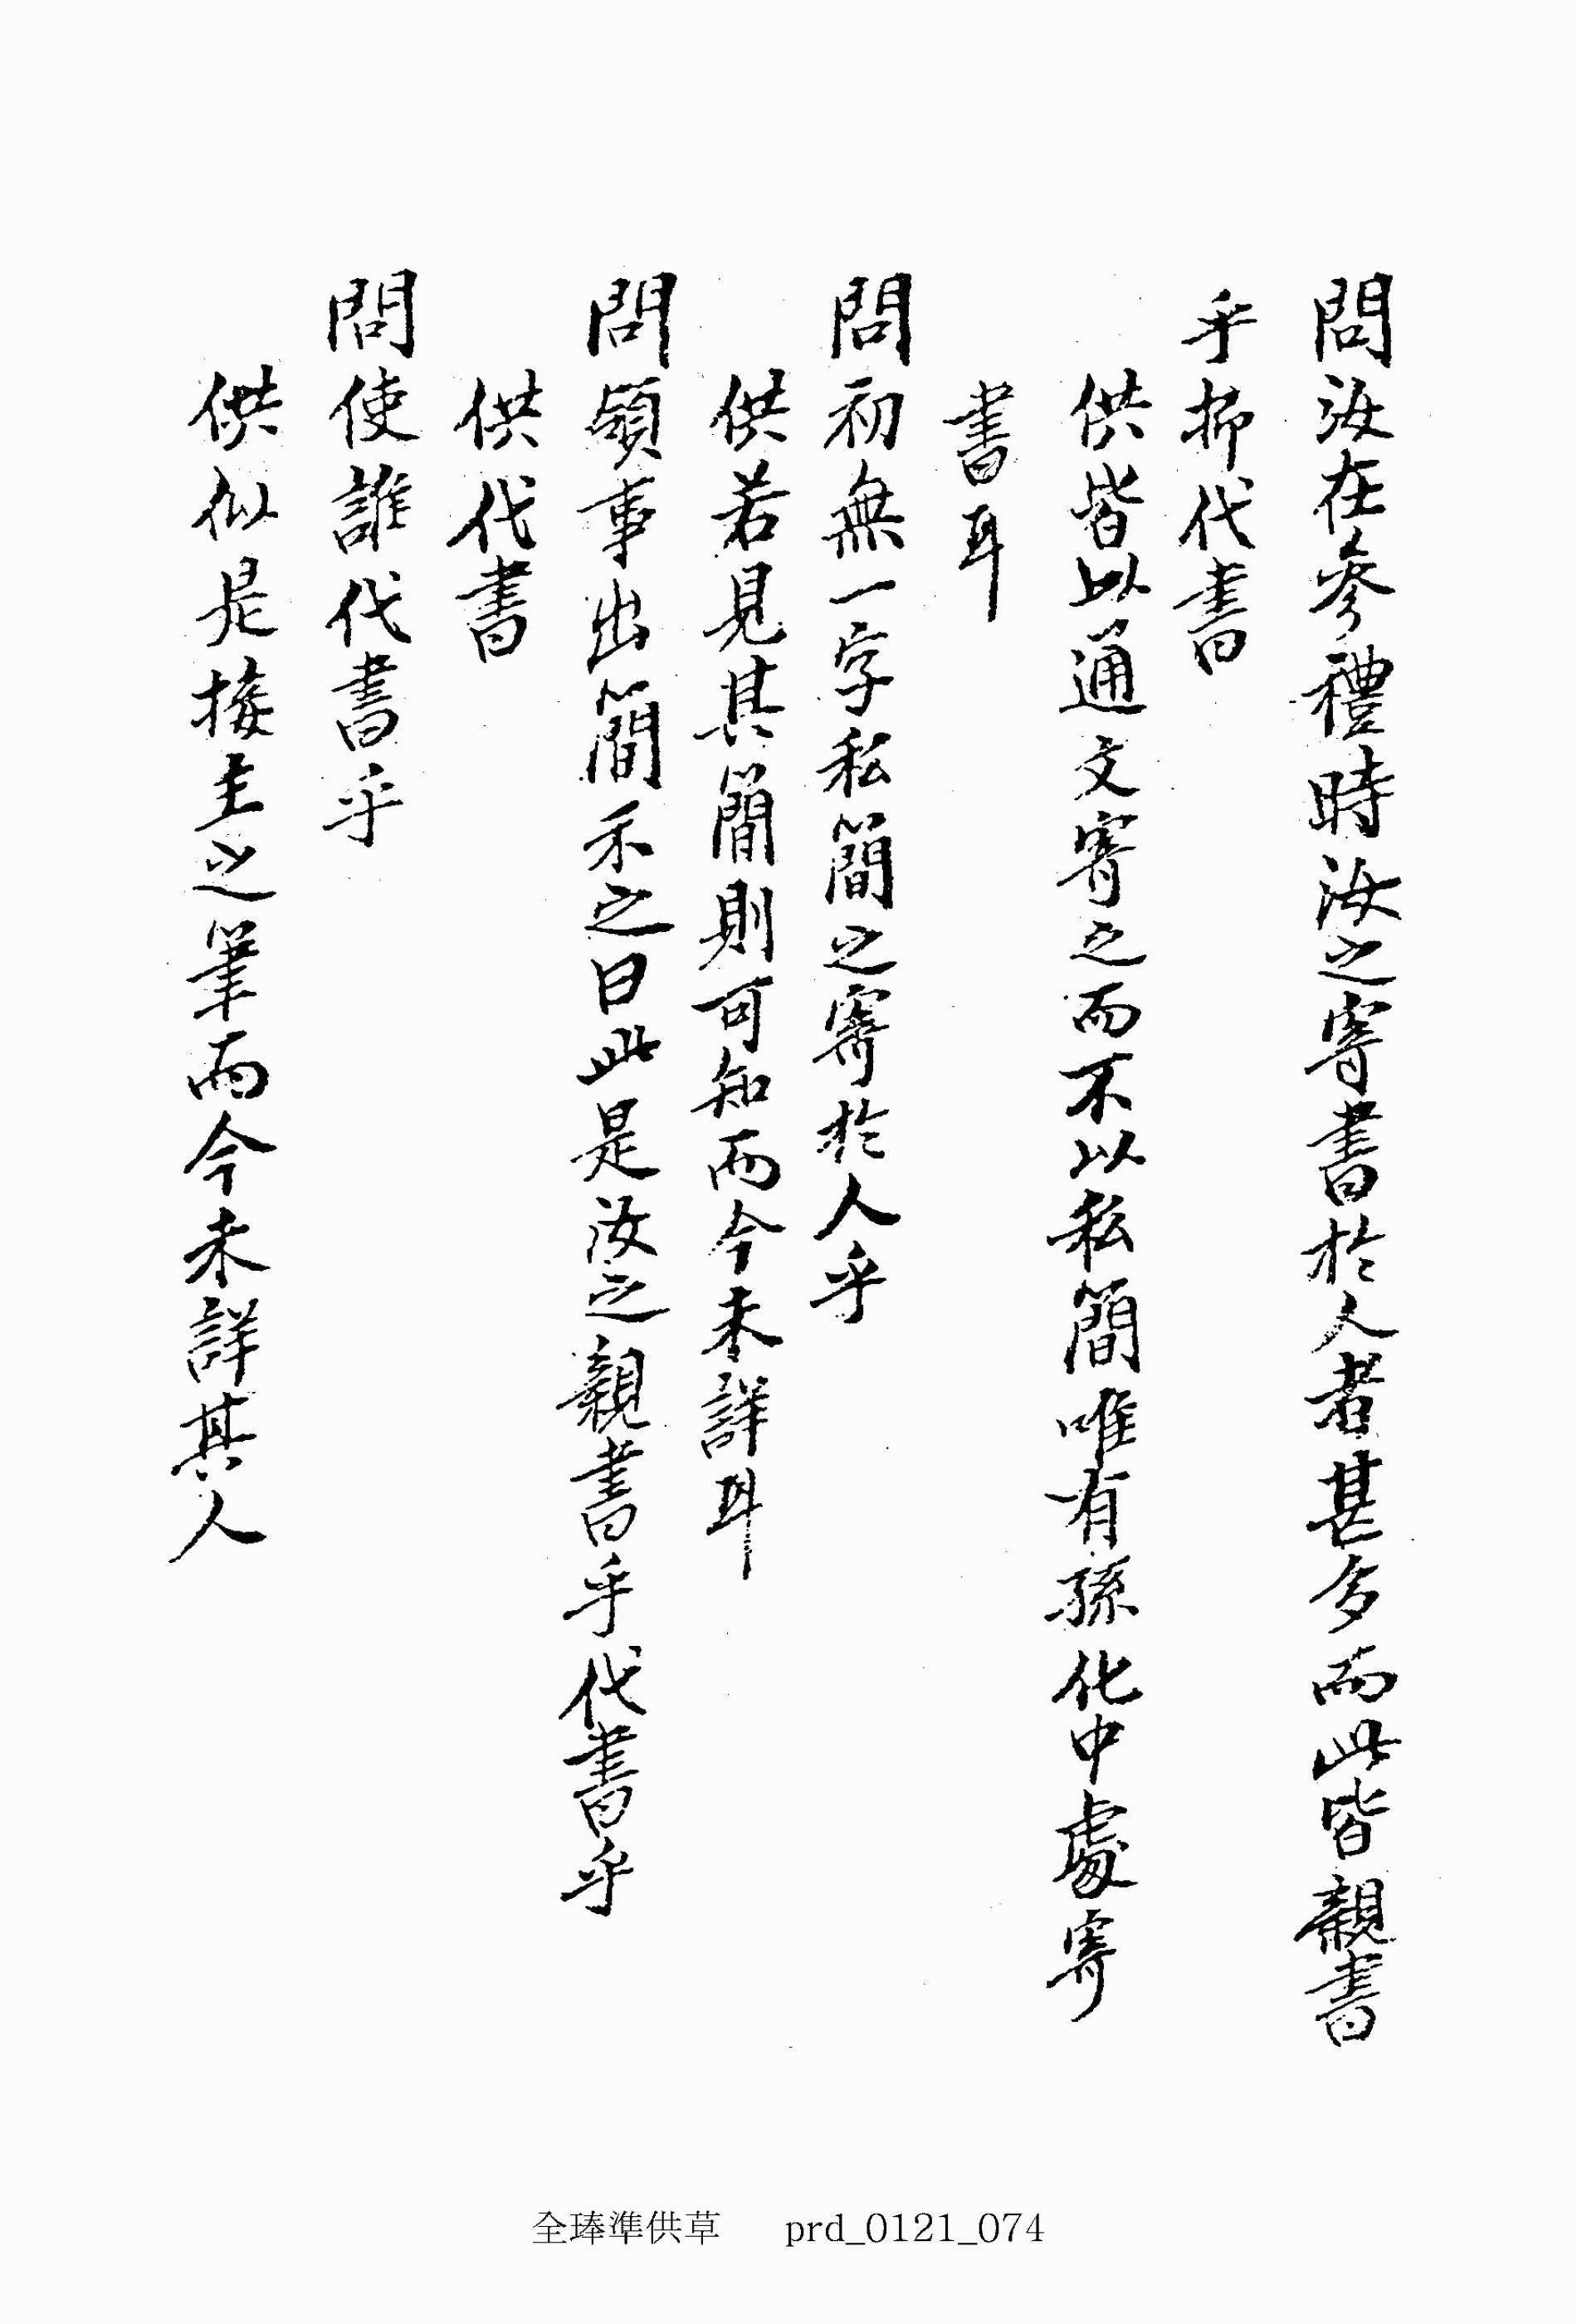 問汝在參禮時汝之寄書於人者甚多而此皆親書
乎抑代書
供皆以通文寄之而不以私簡唯有孫化中處寄
書耳
問初無一字私簡之寄於人乎
供若見其簡則可知而今未詳耳
問領事出簡示之曰此是汝之親書乎代書乎
供代書
問使誰代書乎
供似是接主之筆而今未詳其人
全琫準供草 prd_0121_074